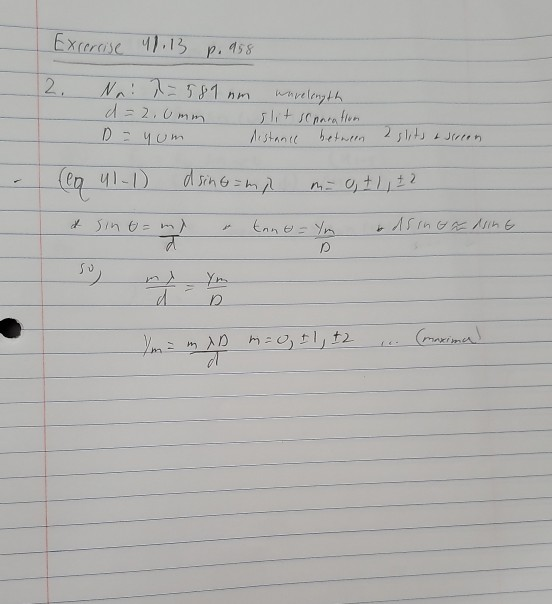 Excercise 41.13 p. 958
2. Na: λ = 589 nm wavelength
d = 2.0 mm slit separation
D = 40 m distance between 2 slits & screen
- (eq 41-1) d sin θ = m λ m = 0, ±1, ±2
* sin θ = mλ/d tan θ = Ym/D
so, mλ/d = Ym/D
Ym = mλD/d m = 0, ±1, ±2 ... (maxima)